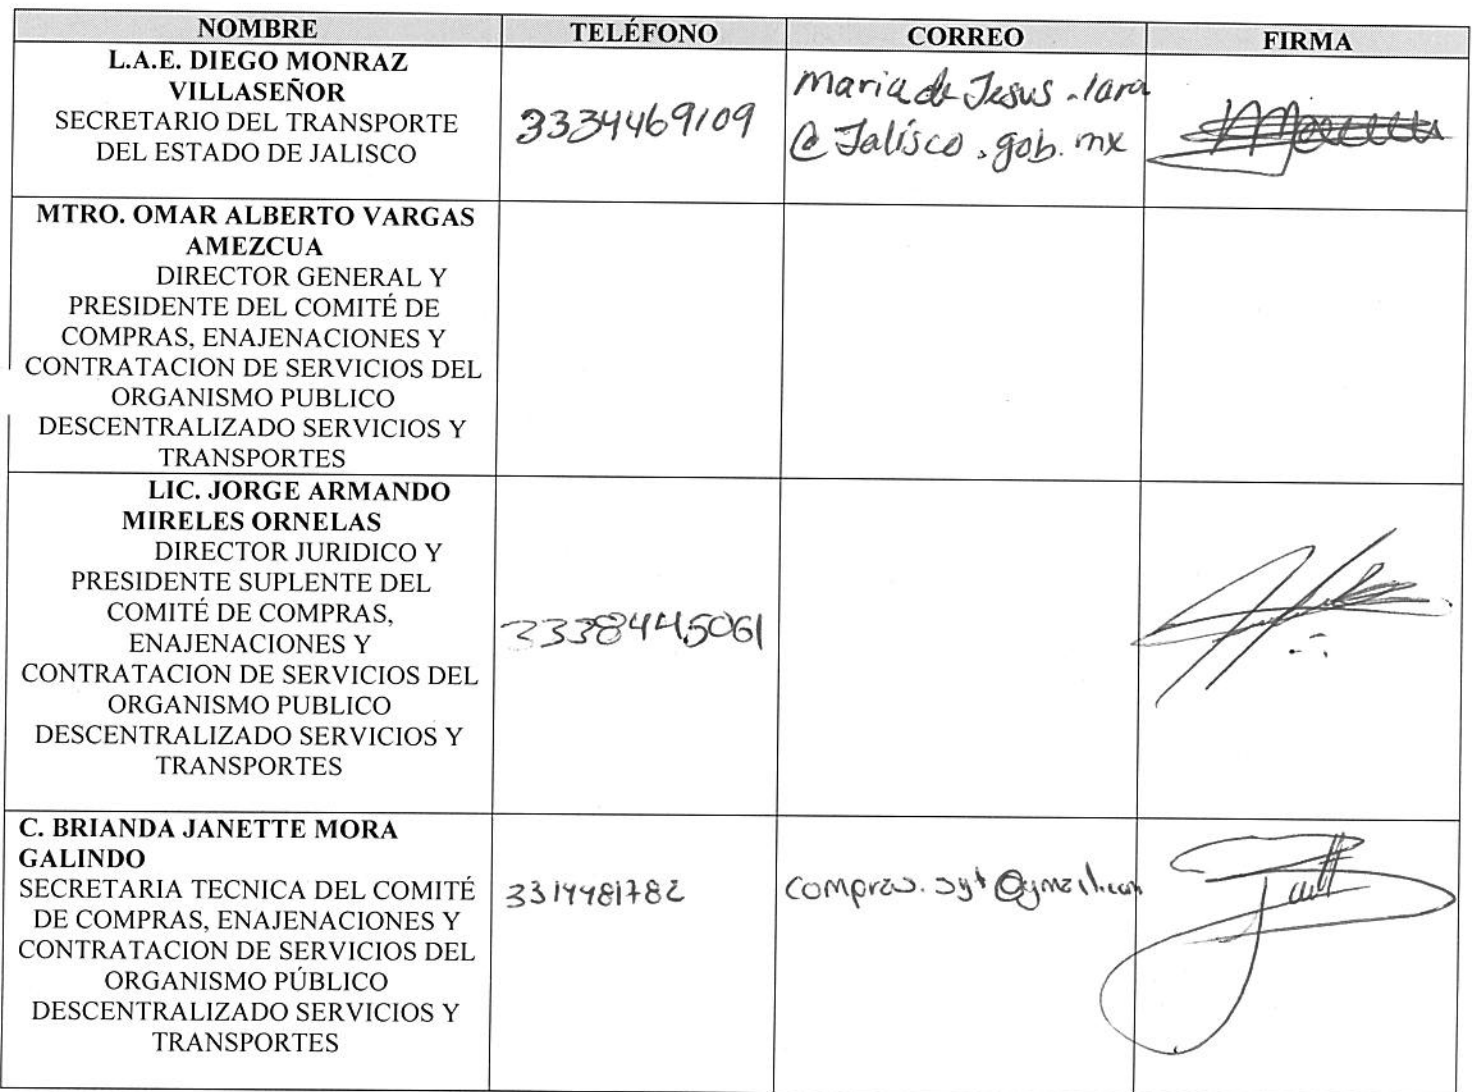 NOMBRE TELÉFONO CORREO FIRMA
L.A.E. DIEGO MONRAZ
VILLASEÑOR
SECRETARIO DEL TRANSPORTE
DEL ESTADO DE JALISCO
3334469109
maria de Jesus.lara
@Jalisco.gob.mx
MTRO. OMAR ALBERTO VARGAS
AMEZCUA
DIRECTOR GENERAL Y
PRESIDENTE DEL COMITÉ DE
COMPRAS, ENAJENACIONES Y
CONTRATACION DE SERVICIOS DEL
ORGANISMO PUBLICO
DESCENTRALIZADO SERVICIOS Y
TRANSPORTES
LIC. JORGE ARMANDO
MIRELES ORNELAS
DIRECTOR JURIDICO Y
PRESIDENTE SUPLENTE DEL
COMITÉ DE COMPRAS,
ENAJENACIONES Y
CONTRATACION DE SERVICIOS DEL
ORGANISMO PUBLICO
DESCENTRALIZADO SERVICIOS Y
TRANSPORTES
3338445061
C. BRIANDA JANETTE MORA
GALINDO
SECRETARIA TECNICA DEL COMITÉ
DE COMPRAS, ENAJENACIONES Y
CONTRATACION DE SERVICIOS DEL
ORGANISMO PÚBLICO
DESCENTRALIZADO SERVICIOS Y
TRANSPORTES
3314481782
compras.syt@gmail.com